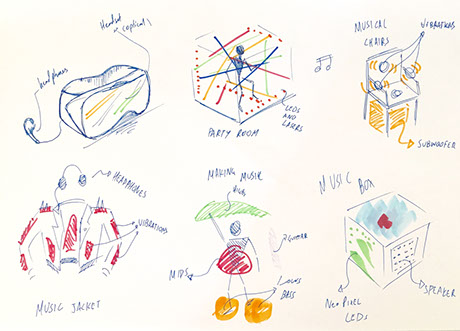 Headset
(optical)
headphones
PARTY ROOM
LEDS
AND
LASERS
MUSICAL
CHAIRS
VIBRATIONS
SUBWOOFER
HEADPHONES
VIBRATIONS
MUSIC JACKET
MAKING MUSIC
HIGH
GUITAR
MIDS
LOWS
BASS
MUSIC
BOX
NeoPixel
LEDs
SPEAKER